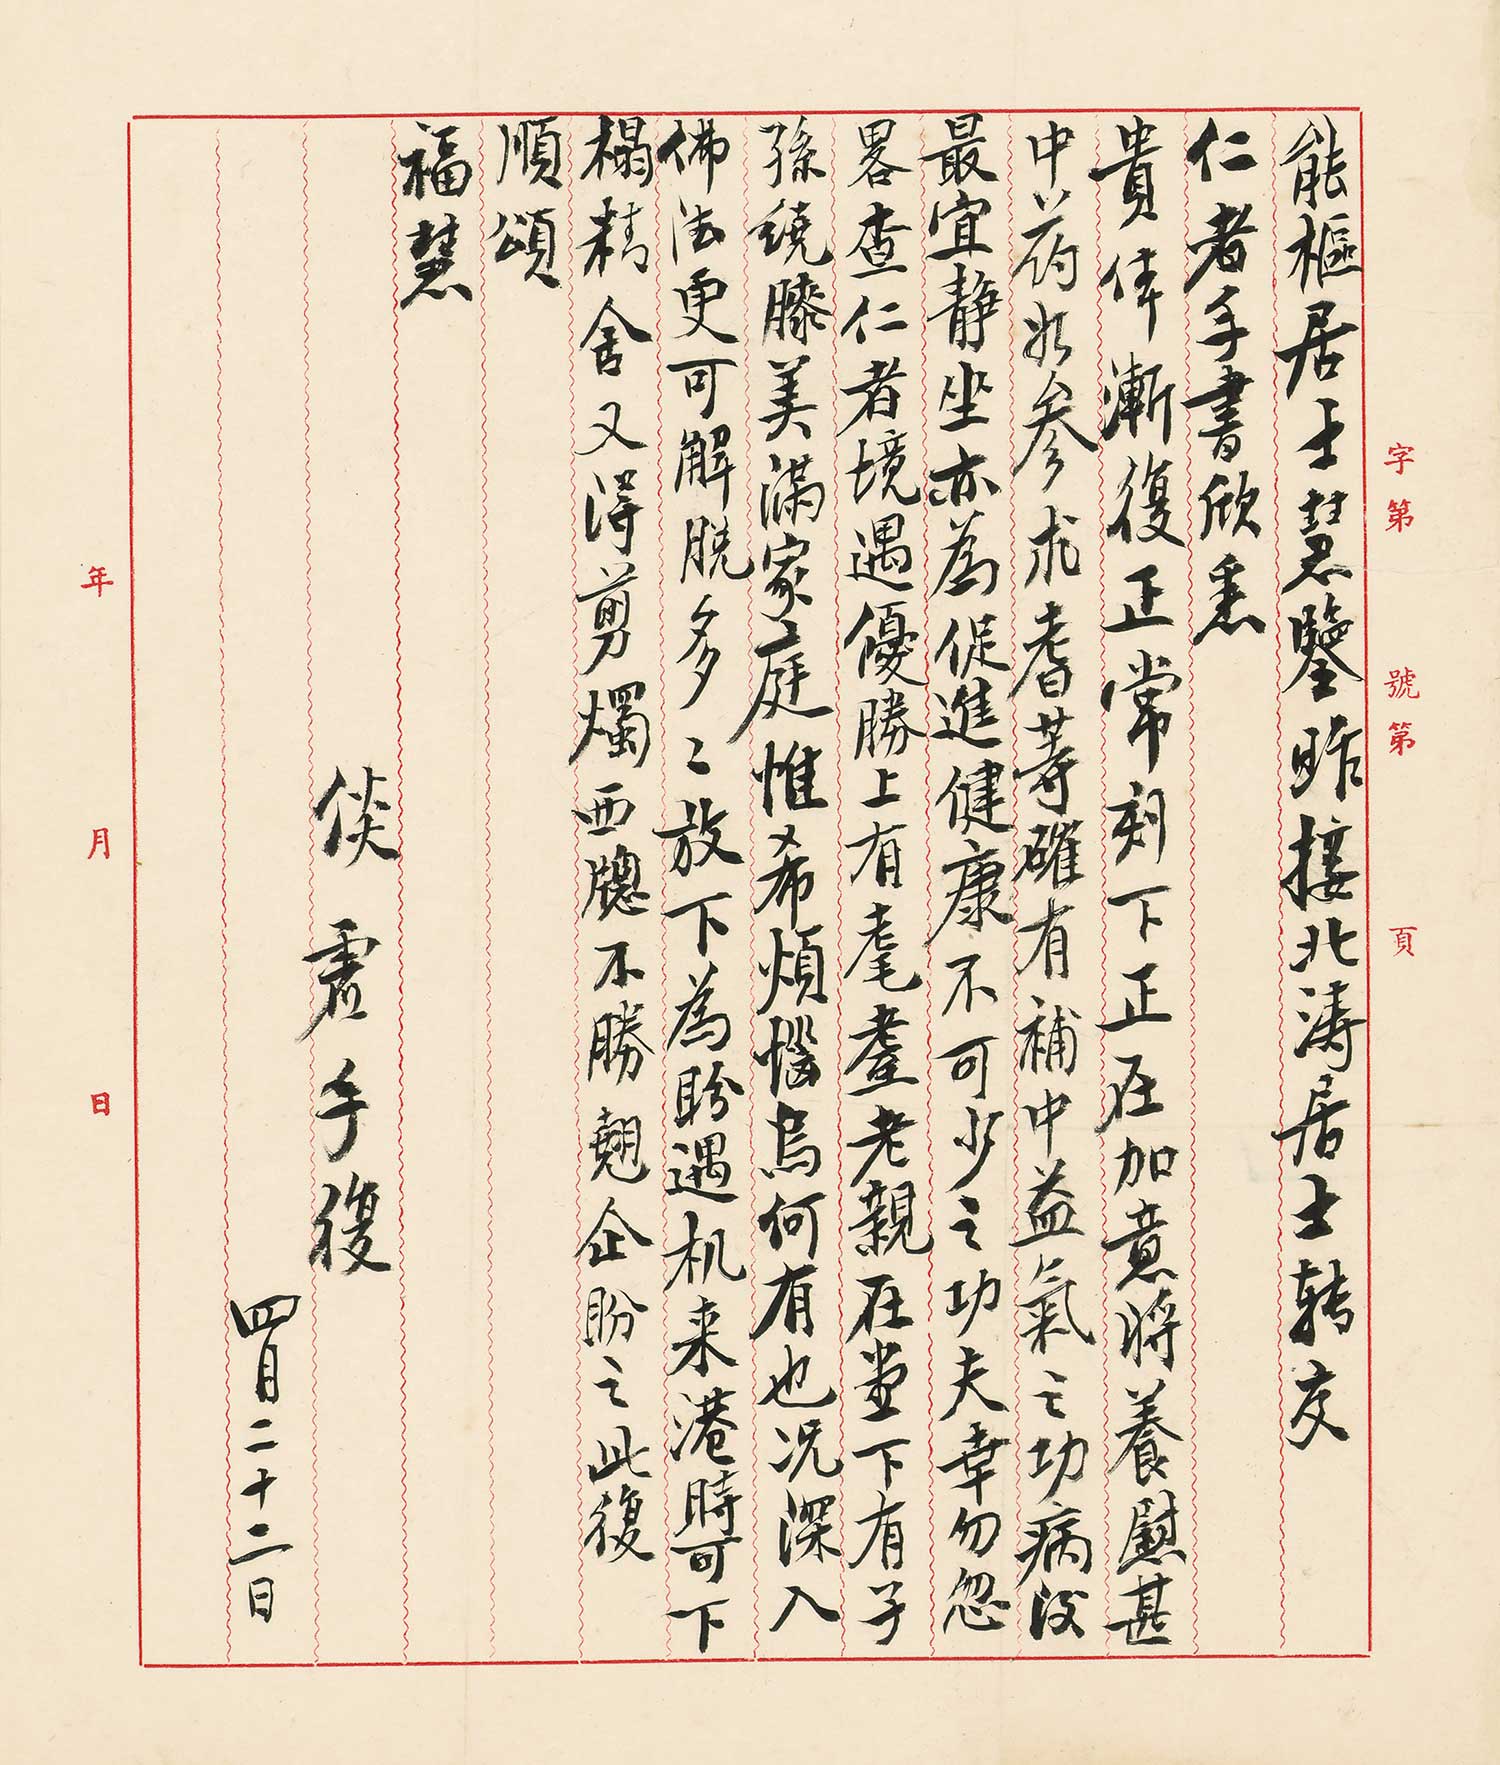 能樞居士慧鑒昨接北涛居士转交
仁者手書欣悉
貴体漸復正常刻下正在加意將養慰甚
中药如参朮耆苓確有補中益氣之功病後
最宜静坐亦為促進健康不可少之功夫幸勿忽
畧查仁者境遇優勝上有耄耋老親在堂下有子
孫繞膝美滿家庭惟希煩惱烏何有也况深入
佛法更可解脱多〻放下為盼遇机来港時可下
榻精舍又得剪燭西牕不勝翹企盼之此復
順頌
福慧
倓虚手復
四月二十二日
字第 號第 頁
年 月 日